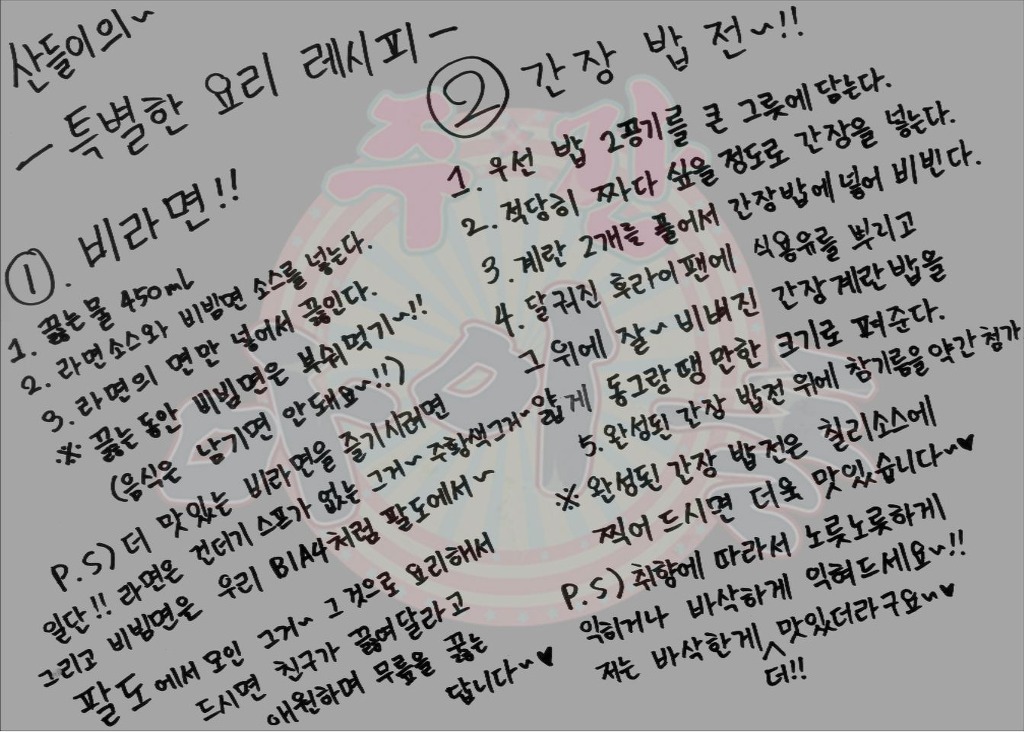 산들이의~
- 특별한 요리 레시피 -
①. 비라면!!
1. 끓는물 450mL
2. 라면소스와 비빔면 소스를 넣는다.
3. 라면의 면만 넣어서 끓인다.
※ 끓는 동안 비빔면은 부숴먹기~!!
(음식은 남기면 안돼요~!!)
P.S) 더 맛있는 비라면을 즐기시려면
일단!! 라면은 건더기 스프가 없는 그거~ 주황색그거~
그리고 비빔면은 우리 B1A4처럼 팔도에서~
팔도에서 모인 그거~ 그것으로 요리해서
드시면 친구가 끓여달라고
애원하며 무릎을 꿇는
답니다~♥
② 간장 밥 전~!!
1. 우선 밥 2공기를 큰 그릇에 담는다.
2. 적당히 짜다 싶을 정도로 간장을 넣는다.
3. 계란 2개를 풀어서 간장밥에 넣어 비빈다.
4. 달궈진 후라이팬에 식용유를 뿌리고
그 위에 잘~ 비벼진 간장계란밥을
얇게 동그랑땡 만한 크기로 펴준다.
5. 완성된 간장 밥전 위에 참기름을 약간 첨가
※ 완성된 간장 밥전은 칠리소스에
찍어 드시면 더욱 맛있습니다~♥
P.S) 취향에 따라서 노릇노릇하게
익히거나 바삭하게 익혀드세요~!!
저는 바삭한게 더!! 맛있더라구요~♥
주간
아이돌